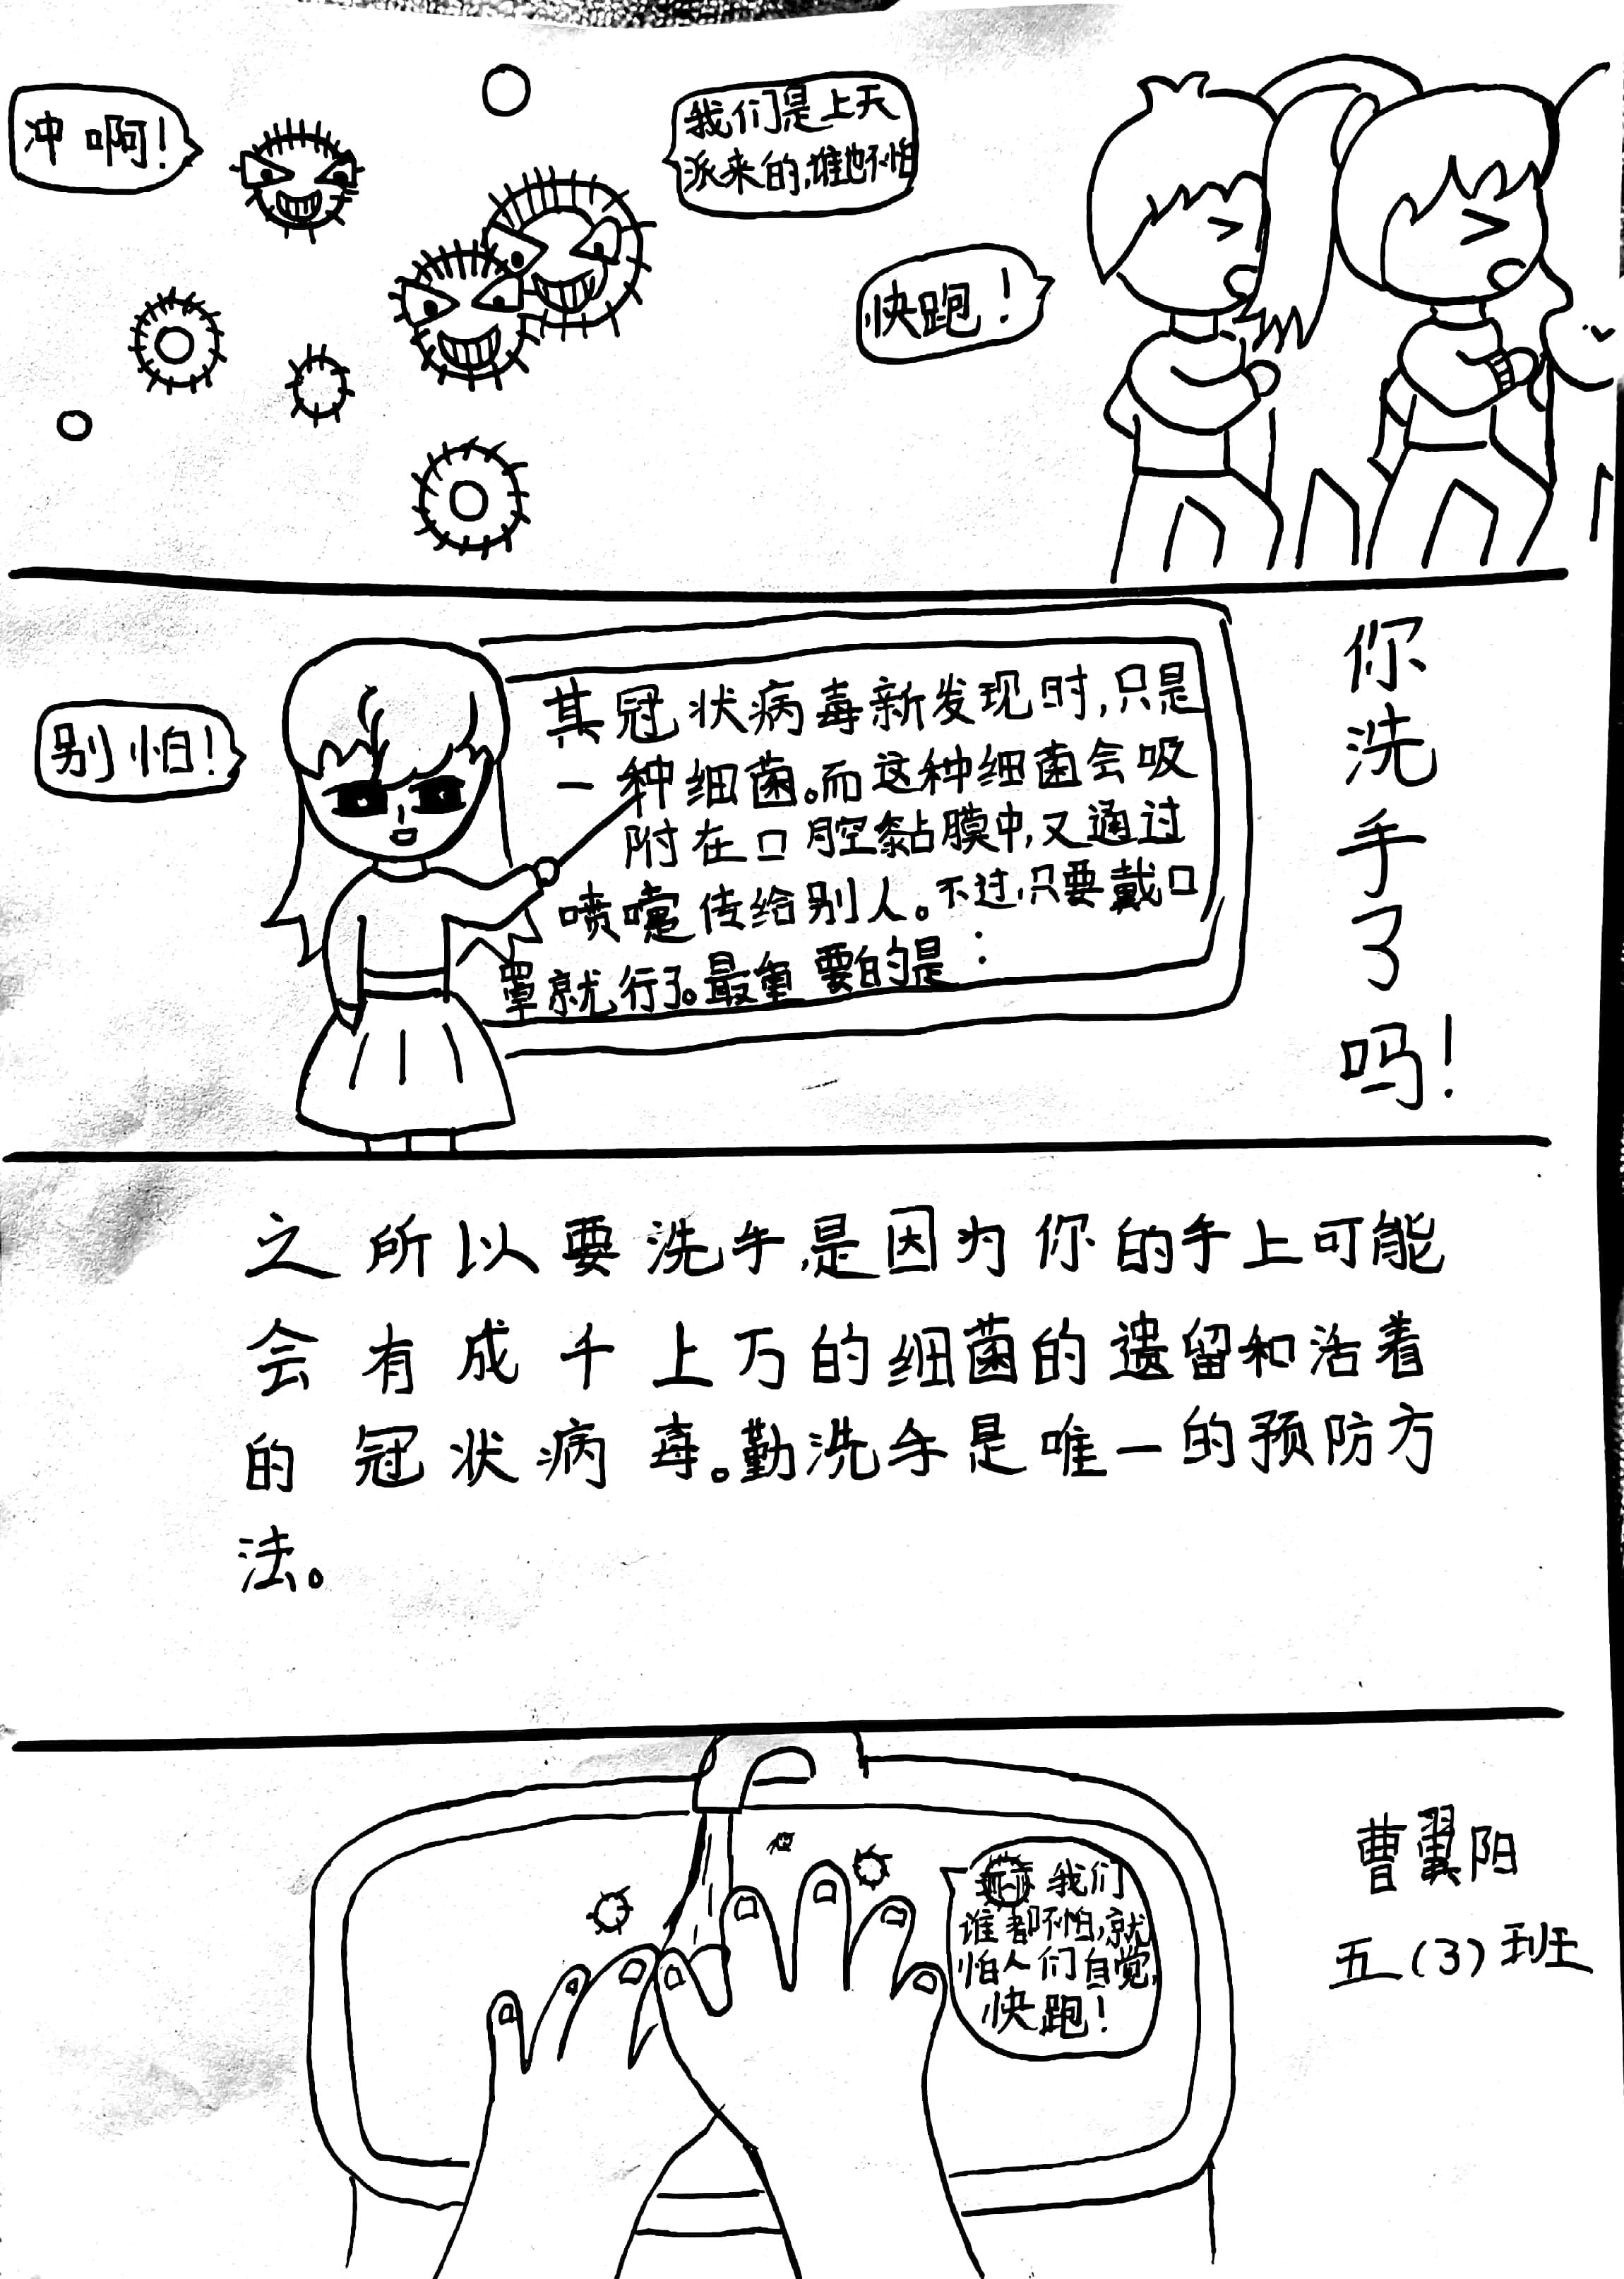 冲啊！
我们是上天
派来的，谁也不怕
快跑！
别怕！
其冠状病毒新发现时，只是
一种细菌。而这种细菌会吸
附在口腔黏膜中，又通过
喷嚏传给别人。不过，只要戴口
罩就行了。最重要的是：
你洗手了吗！
之所以要洗手，是因为你的手上可能
会有成千上万的细菌的遗留和活着
的冠状病毒。勤洗手是唯一的预防方
法。
我们
谁都不怕，就
怕人们自觉，
快跑！
曹翼阳
五（3）班